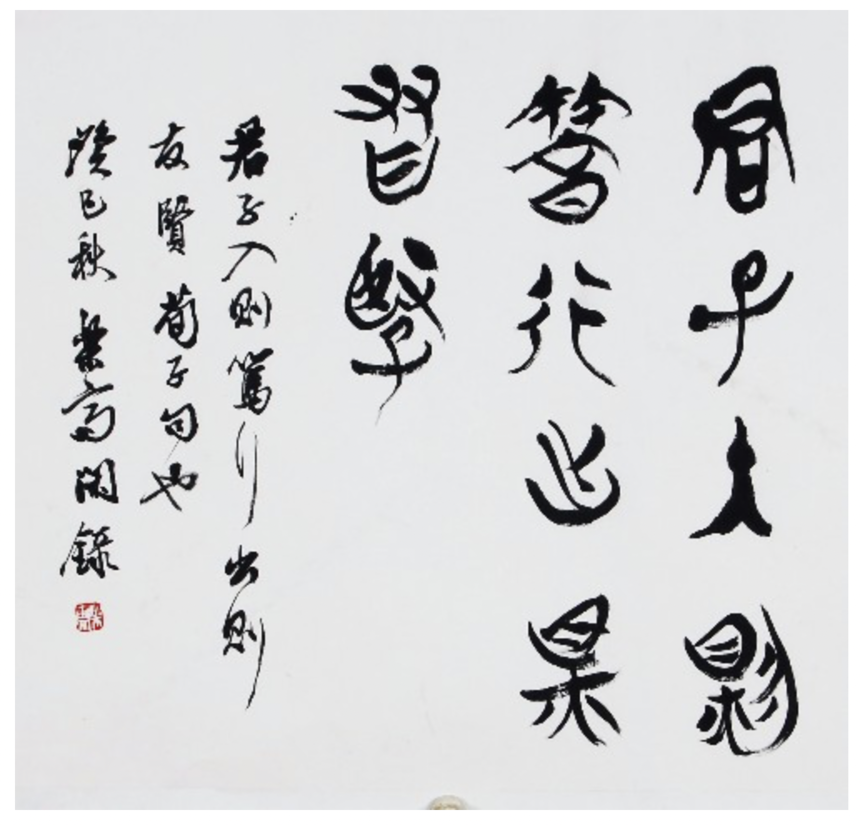 君子入則
篤行出則
友賢
君子入則篤行出則
友賢荀子句也
癸巳秋榮高閑錄